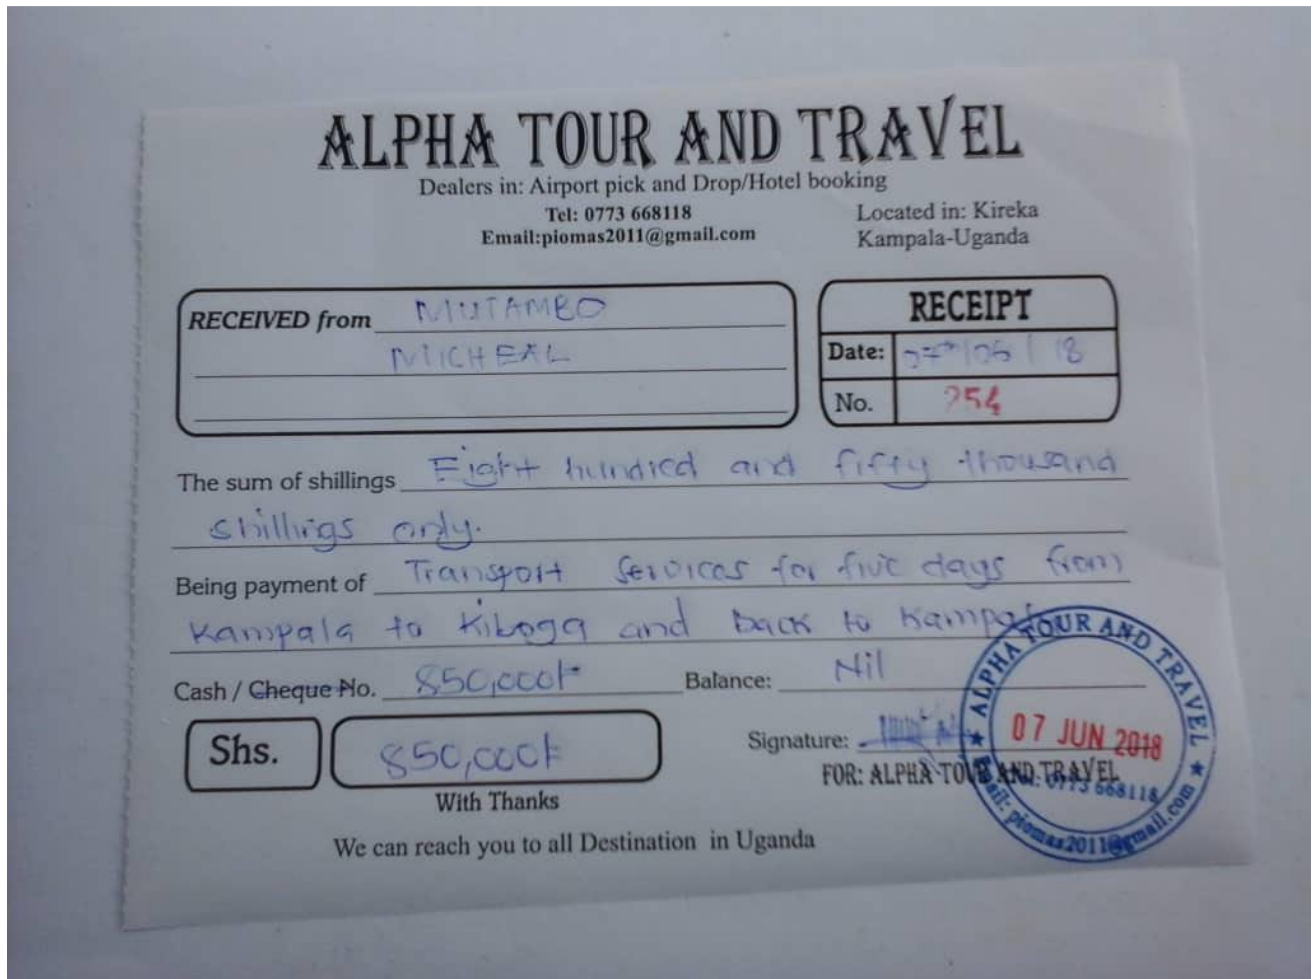 ALPHA TOUR AND TRAVEL
Dealers in: Airport pick and Drop/Hotel booking
Tel: 0773 668118
Email:piomas2011@gmail.com
Located in: Kireka
Kampala-Uganda
RECEIVED from MUTAMBO
MICHEAL
RECEIPT
Date: 07th/06/18
No. 254
The sum of shillings Eight hundred and fifty thousand
shillings only.
Being payment of Transport Services for five days from
Kampala to Kiboga and back to Kampala
Cash / Cheque No. 850,000/= Balance: Nil
Shs. 850,000/=
With Thanks
Signature:
FOR: ALPHA TOUR AND TRAVEL
We can reach you to all Destination in Uganda
ALPHA TOUR AND TRAVEL
07 JUN 2018
Tel: 0773 668118
Email: piomas2011@gmail.com